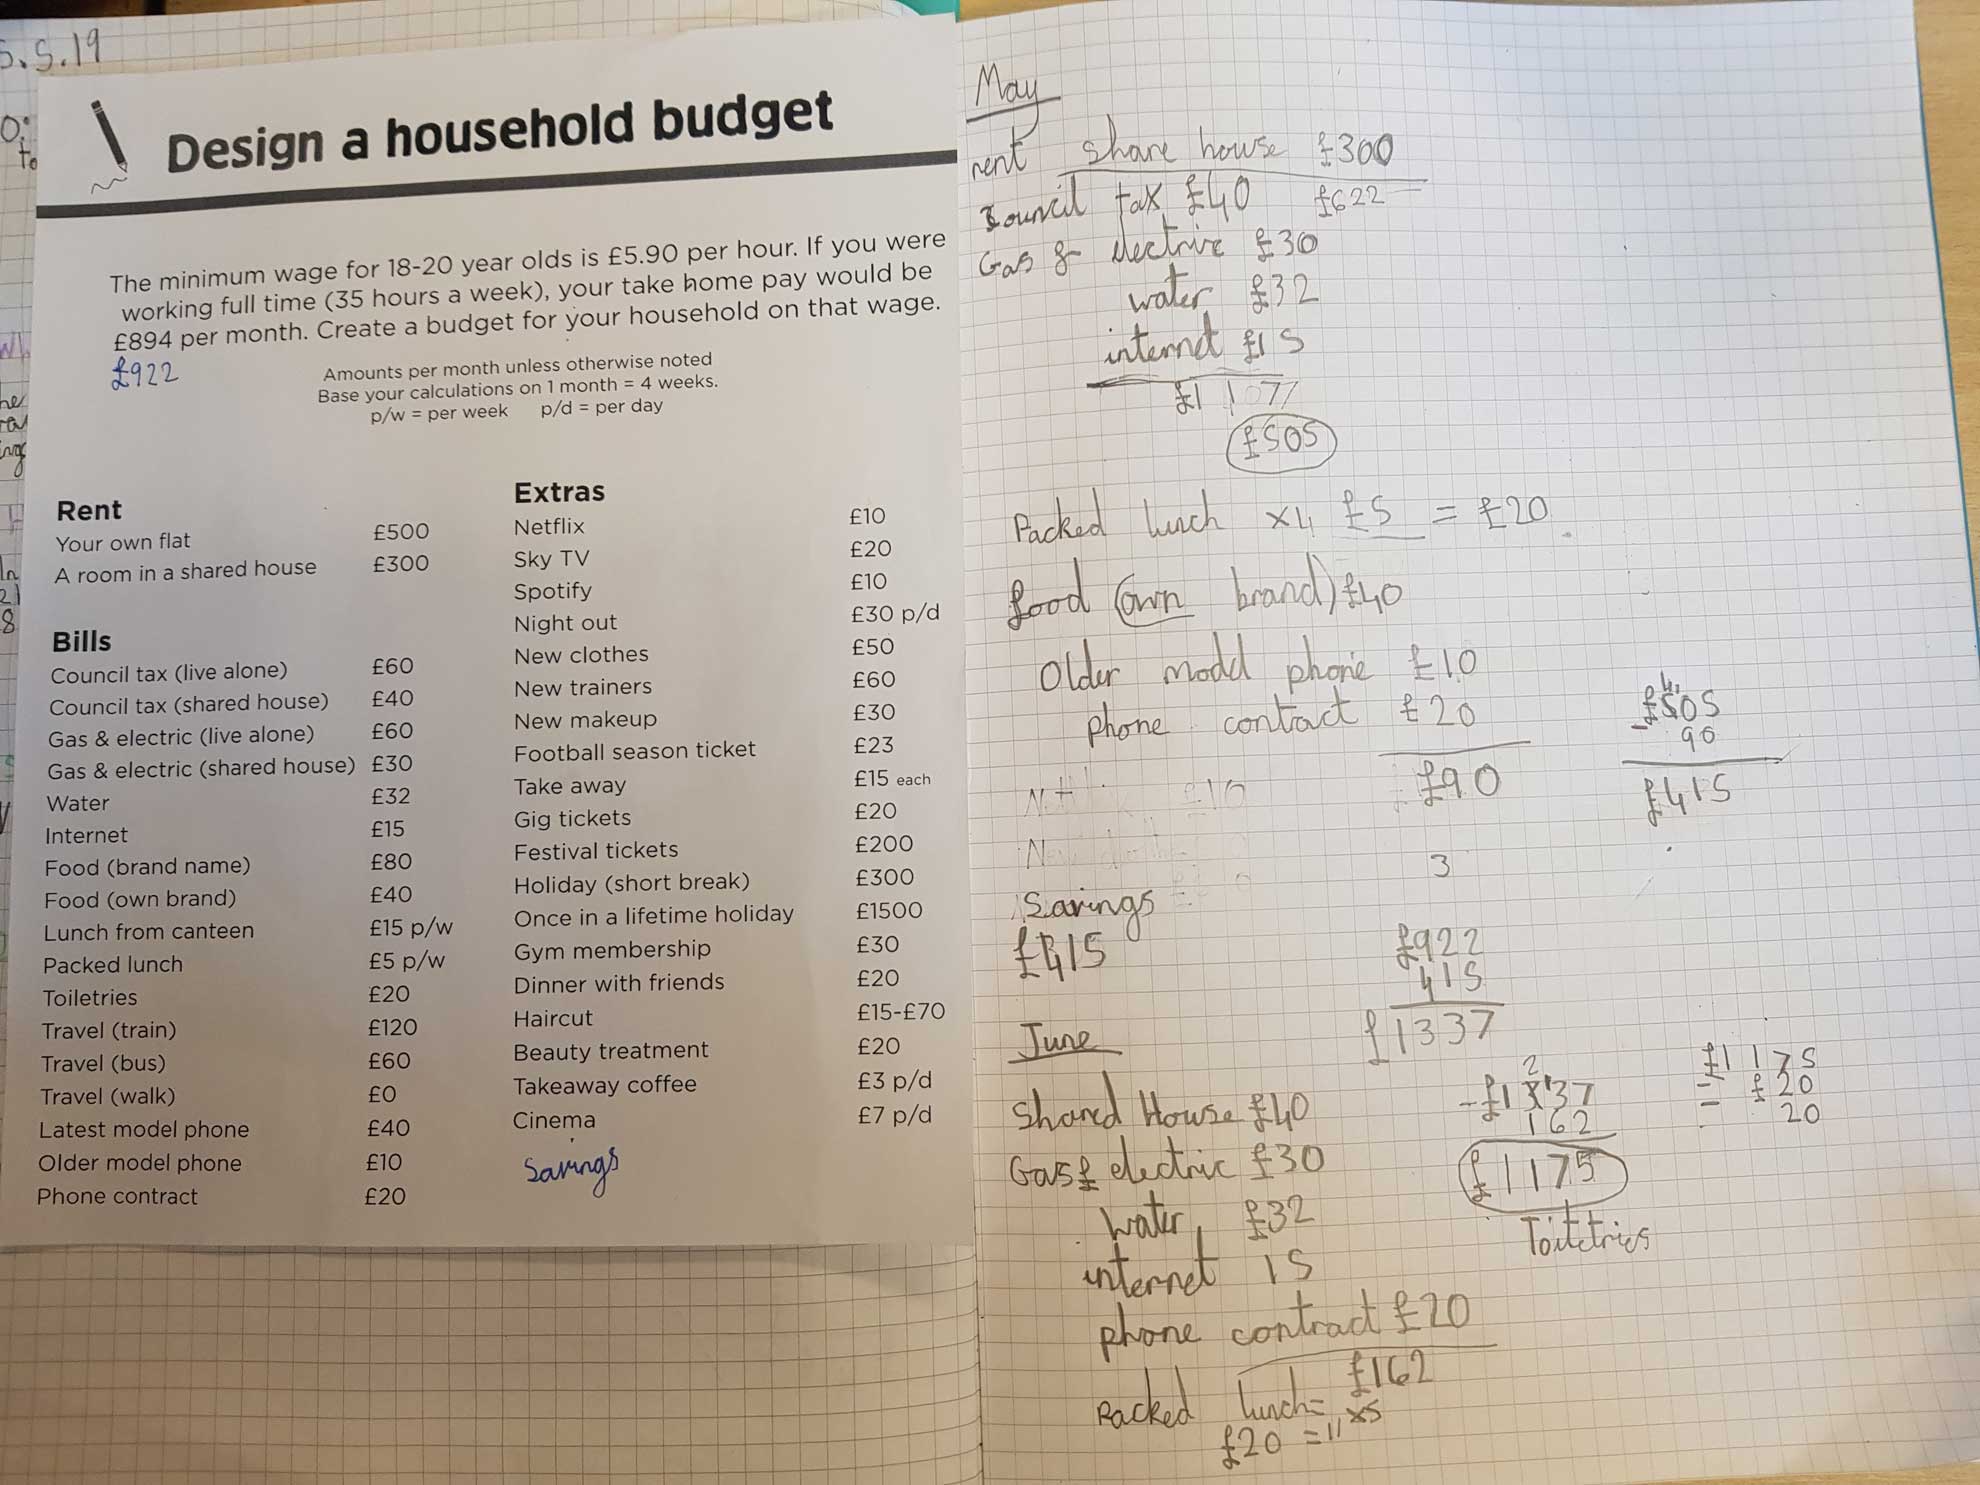 5.5.19
Design a household budget
The minimum wage for 18-20 year olds is £5.90 per hour. If you were
working full time (35 hours a week), your take home pay would be
£894 per month. Create a budget for your household on that wage.
£922
Amounts per month unless otherwise noted
Base your calculations on 1 month = 4 weeks.
p/w = per week p/d = per day
Rent
Your own flat £500
A room in a shared house £300
Bills
Council tax (live alone) £60
Council tax (shared house) £40
Gas & electric (live alone) £60
Gas & electric (shared house) £30
Water £32
Internet £15
Food (brand name) £80
Food (own brand) £40
Lunch from canteen £15 p/w
Packed lunch £5 p/w
Toiletries £20
Travel (train) £120
Travel (bus) £60
Travel (walk) £0
Latest model phone £40
Older model phone £10
Phone contract £20
Extras
Netflix £10
Sky TV £20
Spotify £10
Night out £30 p/d
New clothes £50
New trainers £60
New makeup £30
Football season ticket £23
Take away £15 each
Gig tickets £20
Festival tickets £200
Holiday (short break) £300
Once in a lifetime holiday £1500
Gym membership £30
Dinner with friends £20
Haircut £15-£70
Beauty treatment £20
Takeaway coffee £3 p/d
Cinema £7 p/d
Savings
May
rent share house £300
Council tax £40 £622
Gas & electric £30
water £32
internet £15
£505
Packed lunch x4 £5 = £20
food (own brand) £40
Older model phone £10
phone contract £20
£90
£505
- 90
£415
3
Savings
£415
£922
415
£1337
June
Shared House £40
Gas £ electric £30
water £32
internet 15
phone contract £20
£162
Packed lunch = x5
£20 =
- £1337
162
£1175
Toiletries
£1175
- £20
- 20